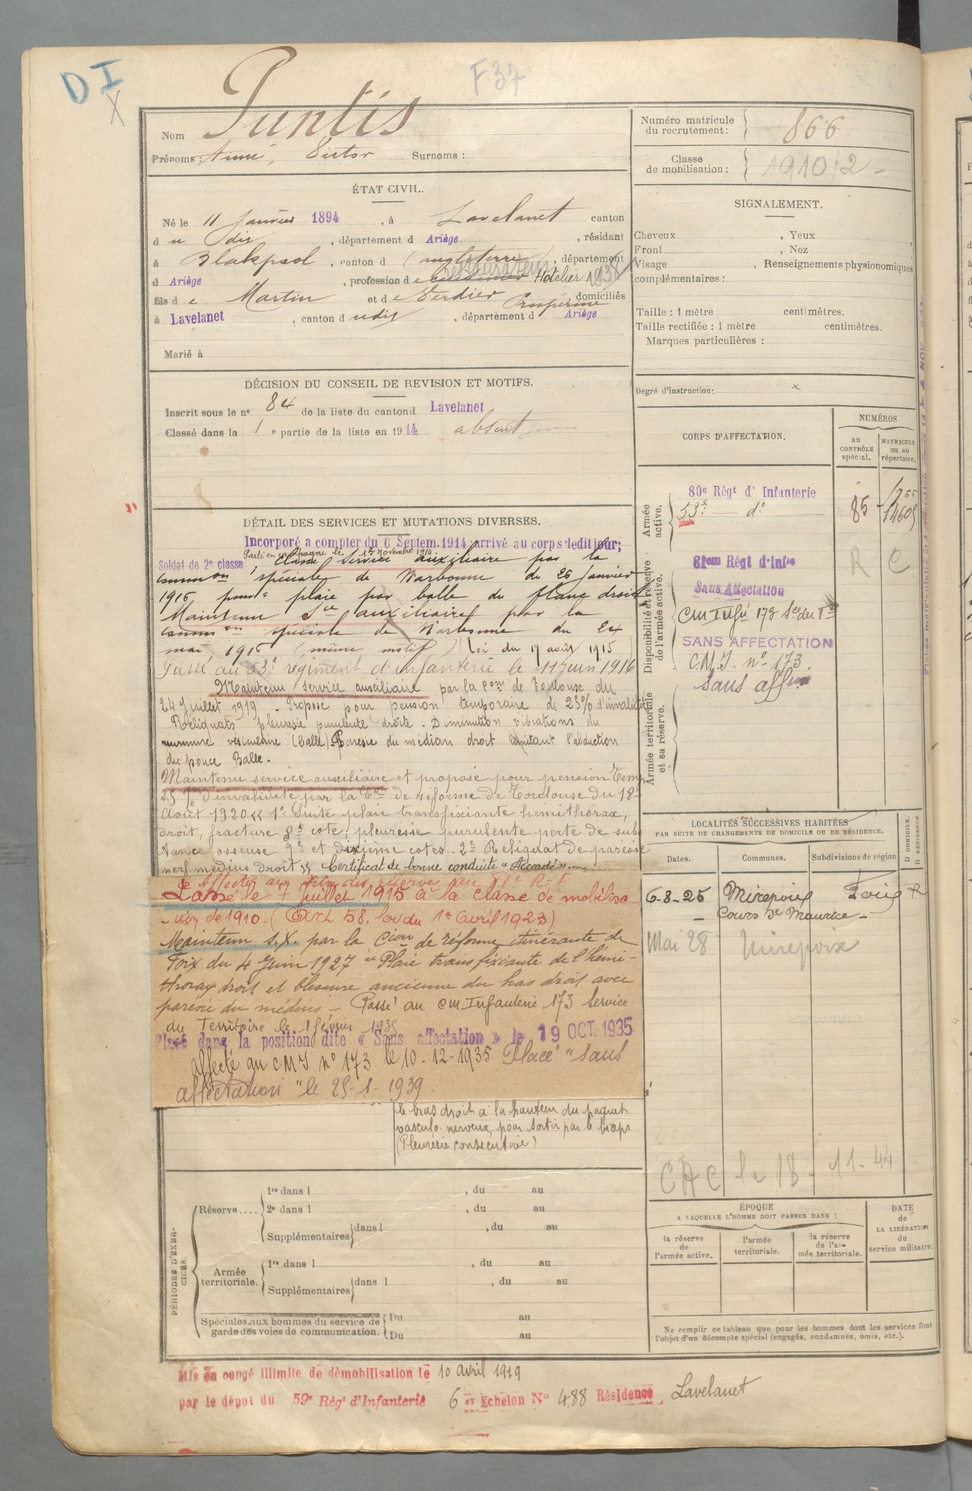 D I
X
F37
Nom Puntis
Prénoms: Aimé, Victor Surnoms :
Numéro matricule du recrutement: 866
Classe de mobilisation: 1910/2
ÉTAT CIVIL.
Né le 11 janvier 1894, à Lavelanet canton
d u dis, département d Ariège, résidant
à Blakpool, canton d (angleterre), département
d Ariège, profession d e Hôtelier 1938
fils d e Martin et d e Verdier Prospérine domiciliés
à Lavelanet, canton d udis, département d Ariège
Marié à
SIGNALEMENT.
Cheveux , Yeux
Front , Nez
Visage , Renseignements physionomiques
complémentaires :
Taille : 1 mètre centimètres.
Taille rectifiée : 1 mètre centimètres.
Marques particulières :
Degré d'instruction: x
DÉCISION DU CONSEIL DE REVISION ET MOTIFS.
Inscrit sous le nº 84 de la liste du canton d Lavelanet
Classé dans la 1 e partie de la liste en 1914 absent
CORPS D'AFFECTATION.
NUMÉROS
au CONTRÔLE spécial.
MATRICULE OU AU répertoire.
Armée active.
80e Régt d' Infanterie
53e dº 85
Disponibilité et réserve de l'armée active.
81eme Régt d'Infie R C
Sans Affectation
CM Infie 173
SANS AFFECTATION
C.M.I. nº 173
Sans aff
Armée territoriale et sa réserve.
DÉTAIL DES SERVICES ET MUTATIONS DIVERSES.
Incorporé a compter du 6 Septem. 1914, arrivé au corps ledit jour;
Parti en campagne le 17 Novembre 1914
Soldat de 2e classe, Classé Service auxiliaire par la
common spéciale de Narbonne du 26 janvier
1915 pour plaie par balle du flanc droit
Maintenu Sce auxiliaire par la
comm on spéciale de Narbonne du 24
mai 1915 (même motif) (Loi du 17 août 1915)
Passé au 53e régiment d'infanterie le 11 juin 1916
Maintenu service auxiliaire par la Con de Toulouse du
24 Juillet 1919 - Proposé pour pension temporaire de 25% d'invalidité
Reliquats pleuresie purulente droite. Diminution vibrations du
murmure vesiculaire (Balle). Paresie du médian droit limitant l'abduction
du pouce Balle.
Maintenu service auxiliaire et proposé pour pension Temp
25% d'invalidité par la Con de réforme de Toulouse du 18
Août 1920 « 1º Suite plaie transfixiante hemithorax,
droit, fracture 8e cote, pleuresie purulente perte de subs
tance osseuse 9e et dixième cotes. 2º Reliquat de paresie
nerf médius droit » Certificat de bonne conduite « Accordé »
Passé le 7 juillet 1915 à la classe de mobilisa-
tion de 1910. (Art 58, loi du 1er Avril 1923)
Maintenu S.X. par la Cion de réforme itinérante de
Foix du 4 Juin 1927 « Plaie transfixiante de l'hémi-
thorax droit et blessure ancienne du bras droit avec
parésie du médius - Passé au CM Infanterie 173 Service
du Territoire le 1 février 1935
Placé dans la position dite « Sans affectation » le 19 OCT. 1935
Affecté au CMI nº 173 le 10-12-1935 Placé "Sans
affectation" le 25-1-1939.
le bras droit à la hauteur du paquet
vasculo-nerveux pour sortir par le
(Pleurésie consécutive)
LOCALITÉS SUCCESSIVES HABITÉES
PAR SUITE DE CHANGEMENTS DE DOMICILE OU DE RÉSIDENCE.
Dates. Communes. Subdivisions de région
D DOMICILE.
R RÉSIDENCE
6-8-25 Mirepoix Foix R
Cours St Maurice
Mai 28 Mirepoix
CAC le 18.11.44
ÉPOQUE
A LAQUELLE L'HOMME DOIT PASSER DANS :
la réserve de l'armée active.
l'armée territoriale.
la réserve de l'armée territoriale.
DATE de LA LIBÉRATION du service militaire.
Ne remplir ce tableau que pour les hommes dont les services font
l'objet d'un décompte spécial (engagés, condamnés, omis, etc.).
PÉRIODES D'EXERCICES.
Réserve....
1re dans l , du au
2e dans l , du au
Supplémentaires dans l , du au
Armée territoriale.
1re dans l , du au
Supplémentaires dans l , du au
Spéciales aux hommes du service de garde des voies de communication.
Du au
Du au
Mis en congé illimité de démobilisation le 10 avril 1919
par le dépôt du 59e Régt d'Infanterie 6 er Echelon Nº 488 Résidence Lavelanet